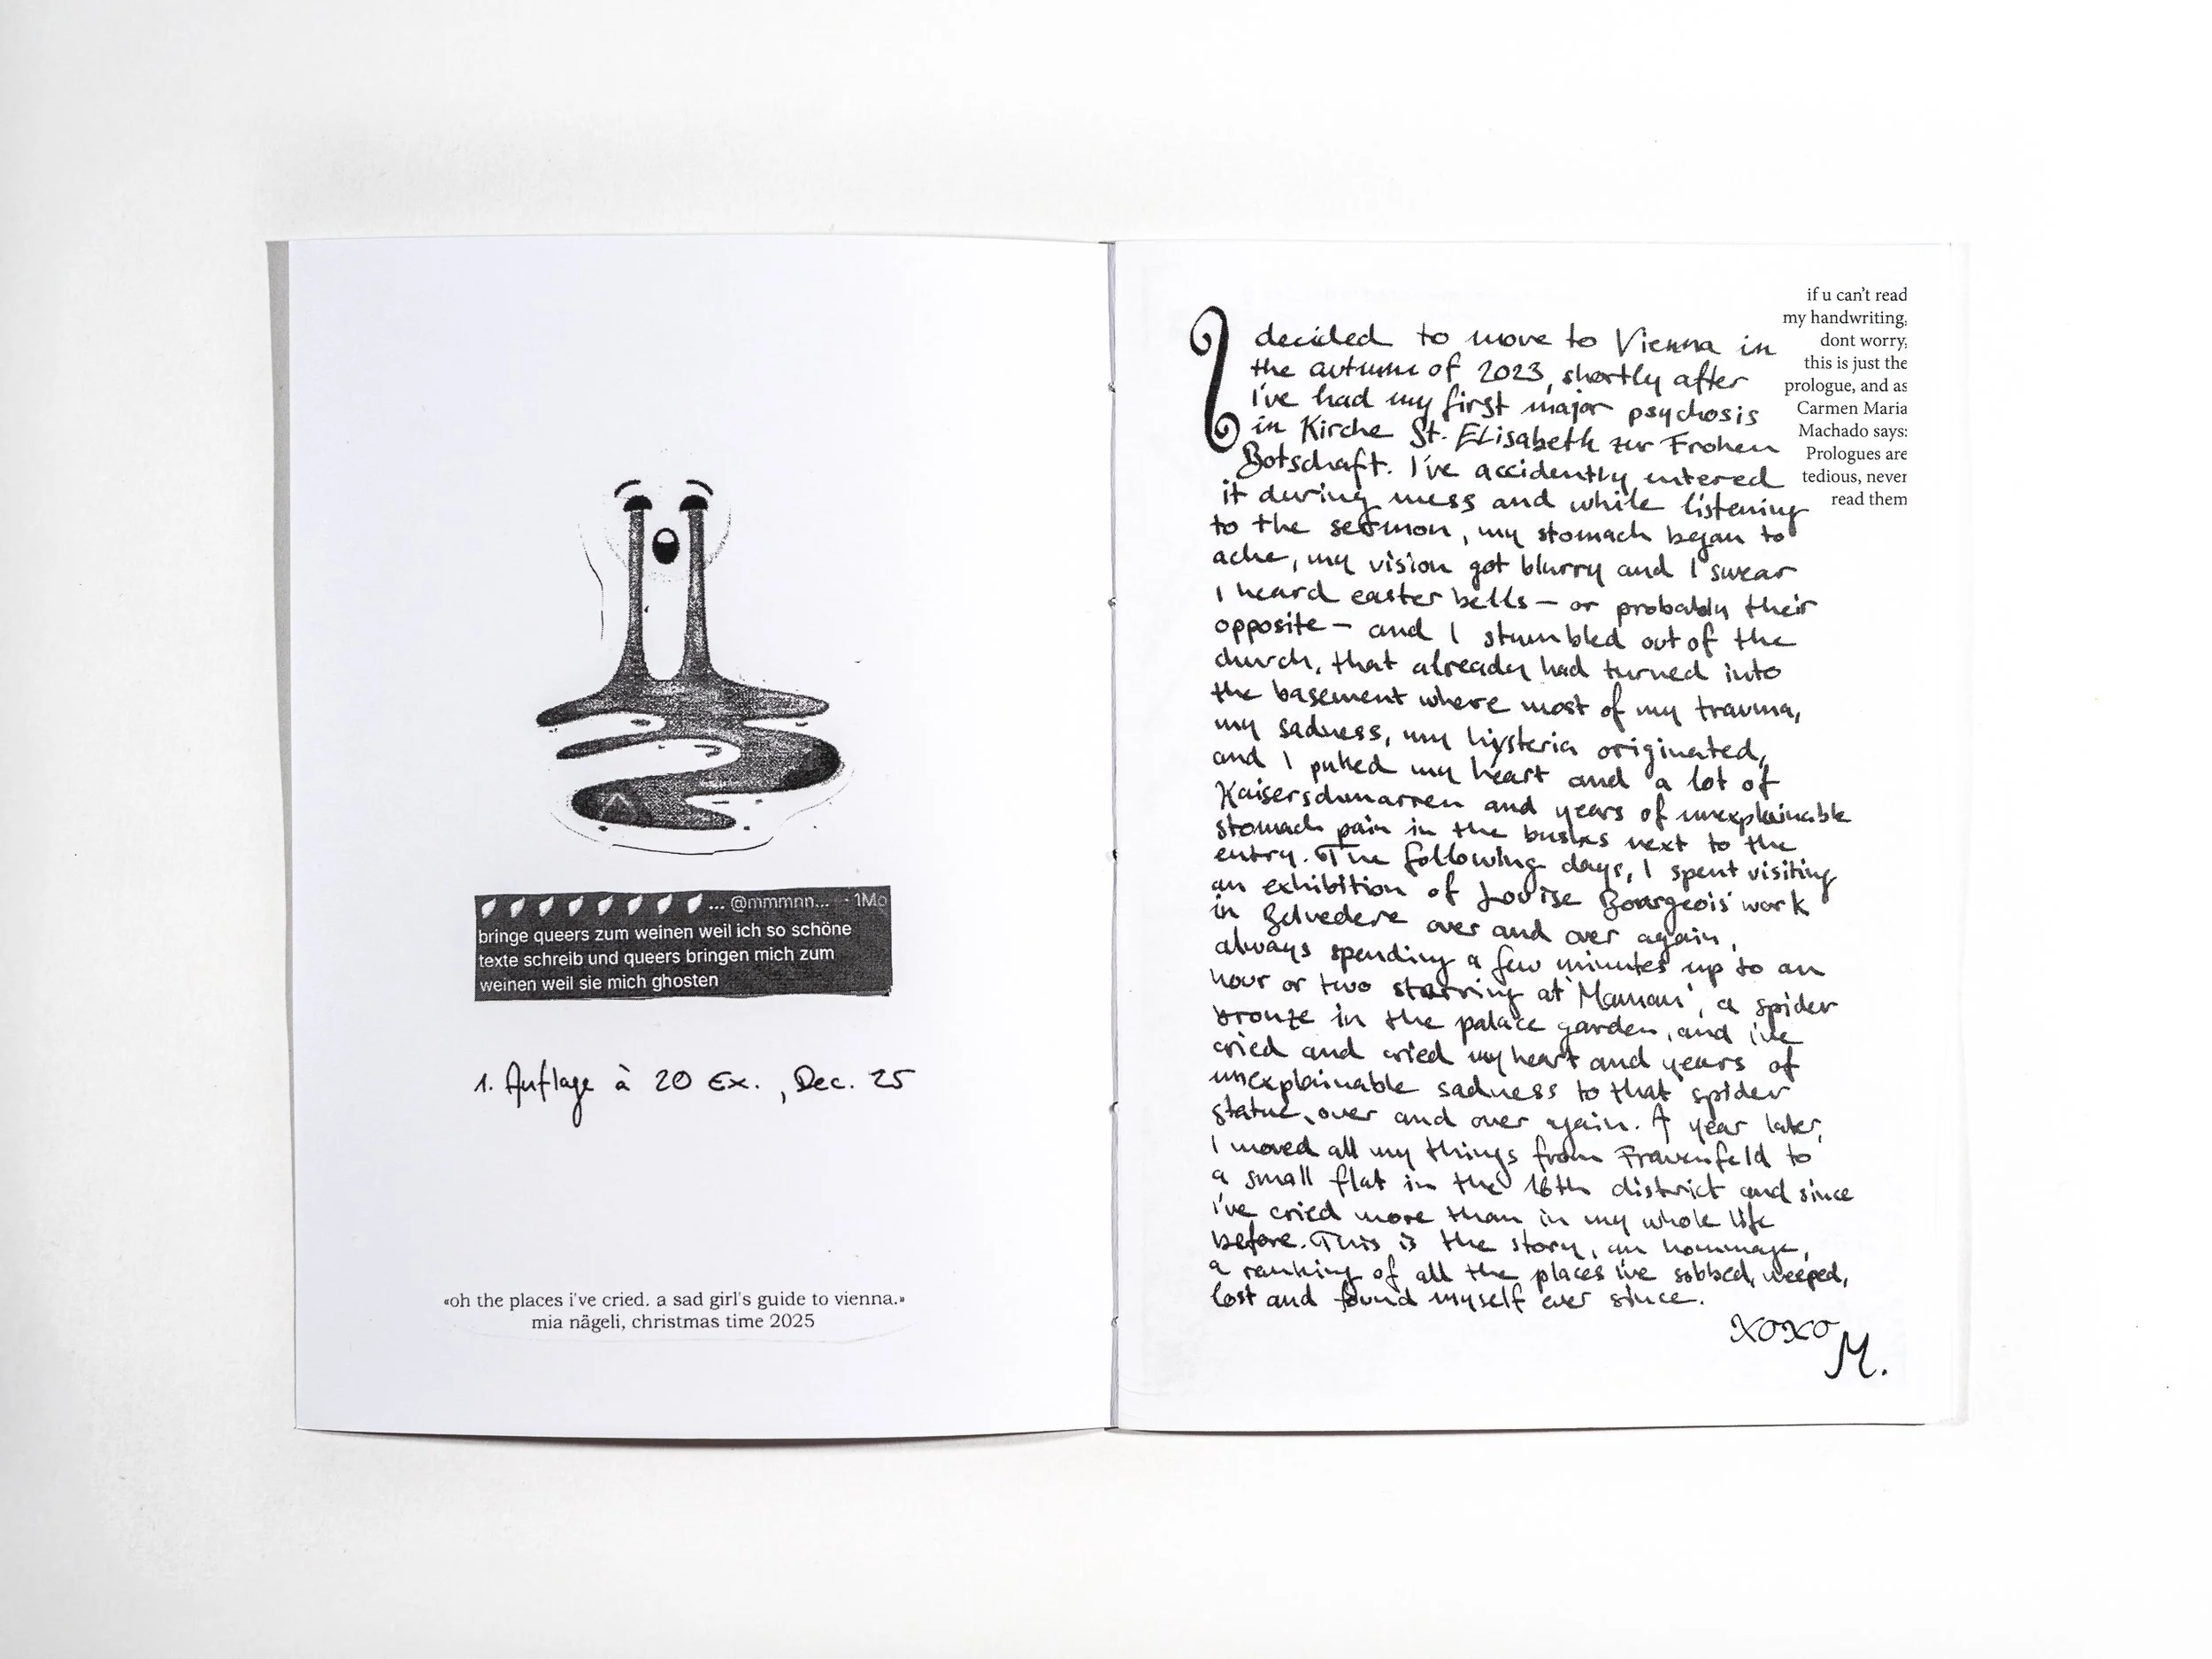 ... @mmmnn... · 1Mo
bringe queers zum weinen weil ich so schöne
texte schreib und queers bringen mich zum
weinen weil sie mich ghosten
1. Auflage à 20 Ex., Dec. 25
«oh the places i've cried. a sad girl's guide to vienna.»
mia nägeli, christmas time 2025
if u can't read
my handwriting,
dont worry,
this is just the
prologue, and as
Carmen Maria
Machado says:
Prologues are
tedious, never
read them
I decided to move to Vienna in
the autumn of 2023, shortly after
i've had my first major psychosis
in Kirche St. Elisabeth zur Frohen
Botschaft. I've accidently entered
it during mess and while listening
to the sermon, my stomach began to
ache, my vision got blurry and I swear
I heard easter bells – or probably their
opposite – and I stumbled out of the
church, that already had turned into
the basement where most of my trauma,
my sadness, my hysteria originated,
and I puked my heart and a lot of
Kaiserschmarren and years of unexplainable
stomach pain in the bushes next to the
entry. The following days, I spent visiting
an exhibition of Louise Bourgeois' work
in Belvedere over and over again,
always spending a few minutes up to an
hour or two starring at 'Maman', a spider
bronze in the palace garden, and i've
cried and cried my heart and years of
unexplainable sadness to that spider
statue, over and over again. A year later,
I moved all my things from Frauenfeld to
a small flat in the 16th district and since
i've cried more than in my whole life
before. This is the story, an hommage,
a ranking of all the places i've sobbed, weeped,
lost and found myself ever since.
xoxo
M.